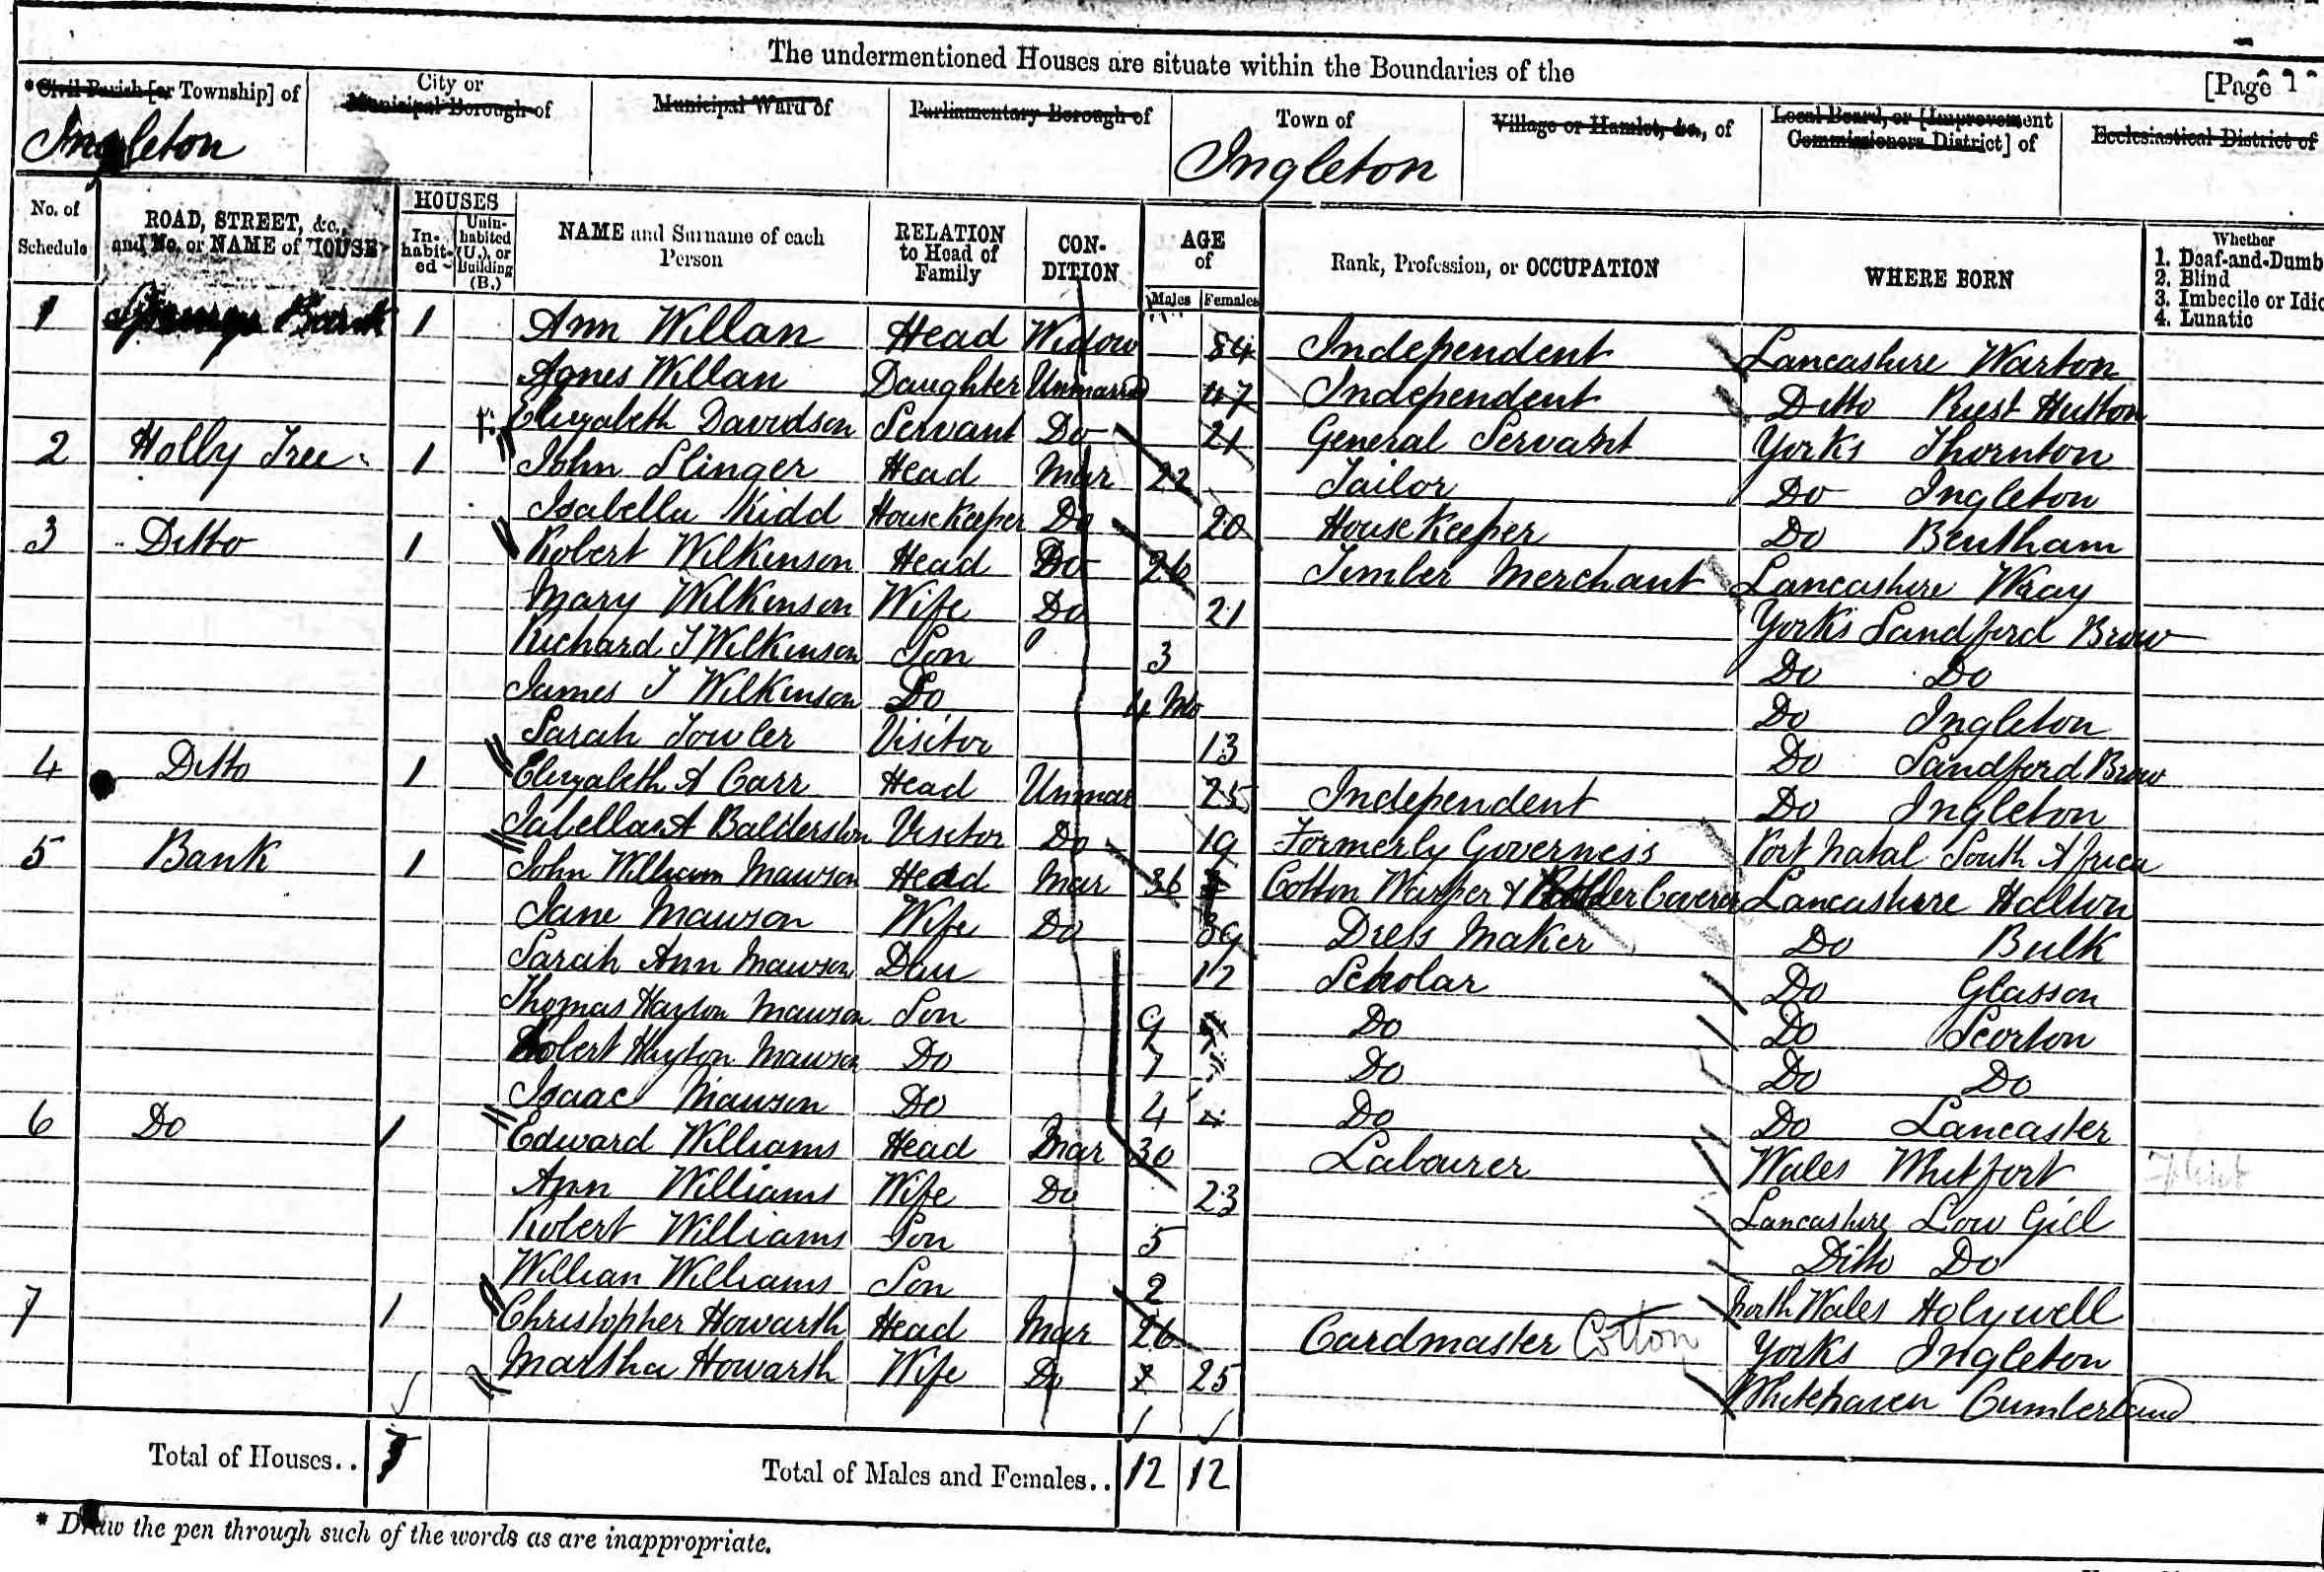 The undermentioned Houses are situate within the Boundaries of the
[Page 1
*Civil Parish [or Township] of
City or Municipal Borough of
Municipal Ward of
Parliamentary Borough of
Town of
Village or Hamlet, &c., of
Local Board, or [Improvement Commissioners District] of
Ecclesiastical District of
Ingleton
Ingleton
No. of Schedule
ROAD, STREET, &c., and No. or NAME of HOUSE
HOUSES
Inhabited
Uninhabited (U.), or Building (B.)
NAME and Surname of each Person
RELATION to Head of Family
CONDITION
AGE of
Males
Females
Rank, Profession, or OCCUPATION
WHERE BORN
Whether
1. Deaf-and-Dumb
2. Blind
3. Imbecile or Idio
4. Lunatic
1 Bank 1 Ann Willan Head Widow 84 Independent Lancashire Warton
Agnes Willan Daughter Unmarried 47 Independent Ditto Priest Hutton
Elizabeth Davidson Servant Do 21 General Servant Yorks Thornton
2 Holly Tree 1 John Slinger Head Mar 22 Tailor Do Ingleton
Isabella Kidd HouseKeeper Do 20 HouseKeeper Do Bentham
3 Ditto 1 Robert Wilkinson Head Do 26 Timber Merchant Lancashire Wray
Mary Wilkinson Wife Do 21 Yorks Sandford Brow
Richard T Wilkinson Son 3 Do Do
James T Wilkinson Do 4 Mo Do Ingleton
Sarah Towler Visitor 13 Do Sandford Brow
4 Ditto 1 Elizabeth A Carr Head Unmar 25 Independent Do Ingleton
Isabella A Balderston Visitor Do 19 Formerly Governess Port Natal South Africa
5 Bank 1 John William Mawson Head Mar 36 Cotton Warper & Roller Coverer Lancashire Halton
Jane Mawson Wife Do 39 Dress Maker Do Bulk
Sarah Ann Mawson Dau 12 Scholar Do Glasson
Thomas Hayton Mawson Son 9 Do Do Scorton
Robert Hayton Mawson Do 7 Do Do Do
Isaac Mawson Do 4 Do Do Lancaster
6 Do 1 Edward Williams Head Mar 30 Labourer Wales Whitfort Flint
Ann Williams Wife Do 23 Lancashire Low Gill
Robert Williams Son 5 Ditto Do
Willian Williams Son 2 North Wales Holywell
7 1 Christopher Howarth Head Mar 26 Cardmaster Cotton Yorks Ingleton
Martha Howarth Wife Do 25 Whitehaven Cumberland
Total of Houses.. 7
Total of Males and Females.. 12 12
* Draw the pen through such of the words as are inappropriate.